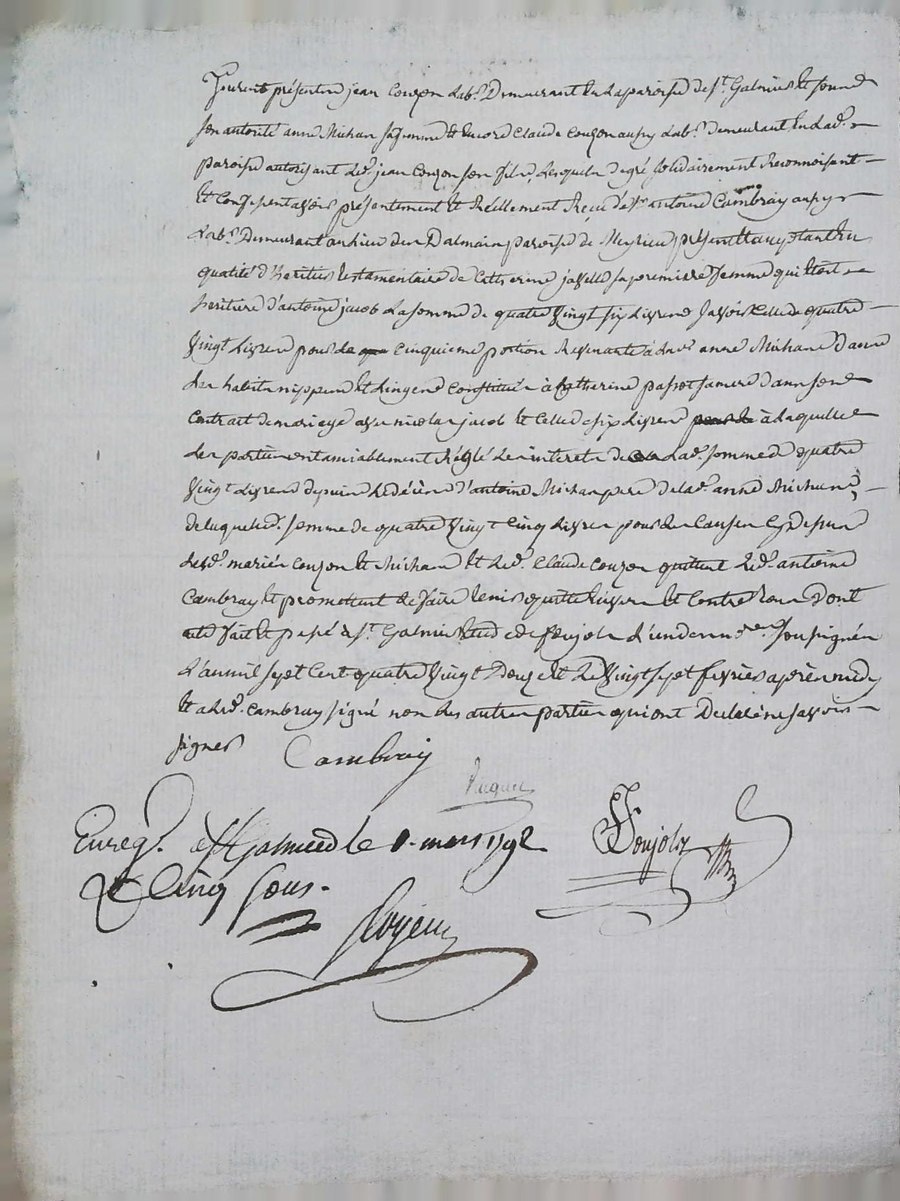 furent présents jean Couzon Lab.r Demeurant En Laparoisse de St. Galmier Et sous
son autorité anne Michan sa femme Et encore Claude Couzon aussy Lab.r demeurant En Lad.e
paroisse autorisant Led. jean Couzon son fils, Lesquels de gré solidairement Reconnoissent
Et Confessent avoir présentement Et Réellement Reçu de Sr. antoine Cambray aussy
Lab.r Demeurant au lieu du Dalmain paroisse de Meyrieu présent Et acceptant En
qualité d'héritier testamentaire de Catherine javelle sa premiere femme qui Etoit
heritiere d'antoine jacob La somme de quatre Vingt six Livres savoir Celle de quatre
Vingt Livres pour Cinquieme portion Revenante à Lad.e anne Michan
des habits nippes Et Linges Constitués à Catherine passot sa mere dans son
Contrat de mariage avec nicolas jacob Et Celle de six Livres à Laquelle
Les parties ont amiablement Réglé Les interets de Lad.e somme de quatre
Vingt Livres depuis Le décès d'antoine Michan pere de lad.e anne Michan
de laquelle somme de quatre Vingt Livres pour Les Causes Cy dessus
Lesd. mariés Couzon Et Michan Et Led. Claude Couzon quittent Led. antoine
Cambray Et promettent Le faire tenir quitte Envers Et Contre tous Dont
acte fait Et passé à St. Galmier Etude de foujols L'un des no.res soussignés
L'an mil sept Cent quatre Vingt Douze Et Le Vingt sept fevrier après midy
Et a Led. Cambray signé non Les autres parties qui ont Declaré ne savoir
signer Cambray
Enreg.é à St Galmier le 1. mars 1792 foujols
Cinq sous.